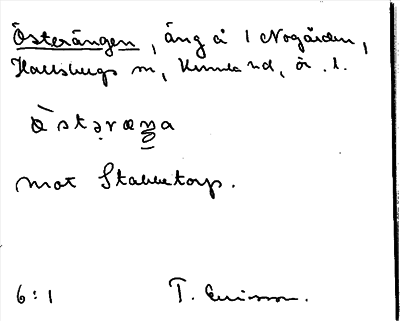 Österängen, äng å 1 Nogården,
Hallsbergs sn, Kumla hd, Ör. l.
Ö̀stəræŋa
mot Stabbetorp.
6:1 T. Ericsson.